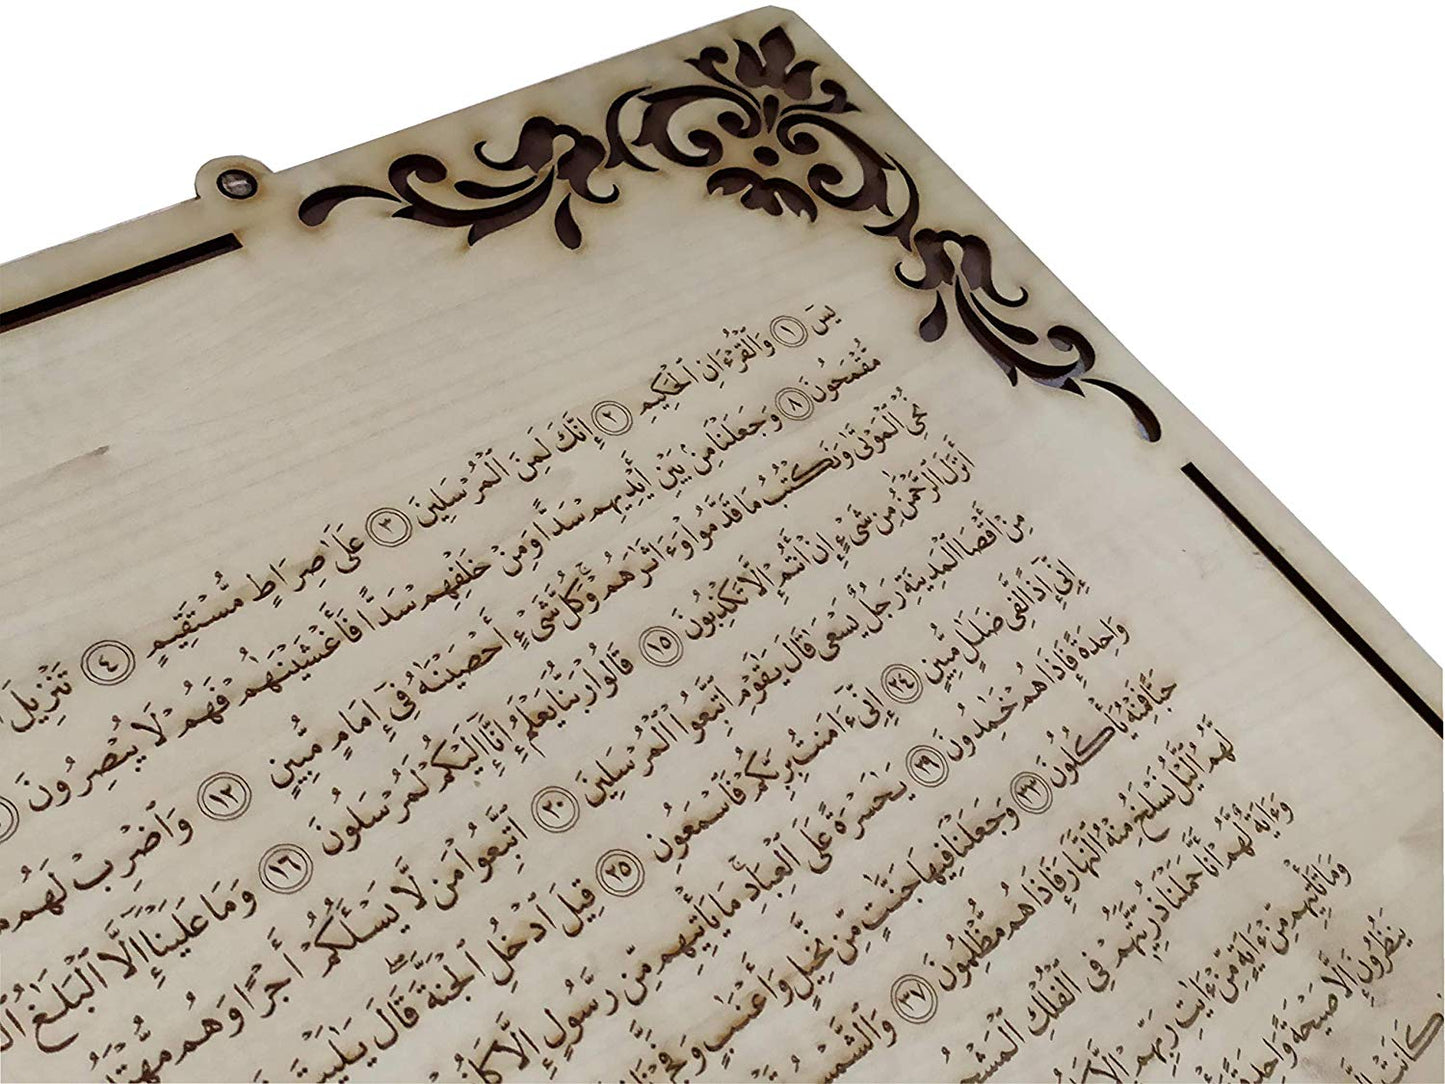 يسٓ ١ وَٱلْقُرْءَانِ ٱلْحَكِيمِ ٢ إِنَّكَ لَمِنَ ٱلْمُرْسَلِينَ ٣ عَلَىٰ صِرَٰطٍ مُّسْتَقِيمٍ ٤ تَنزِيلَ
مُّقْمَحُونَ ٨ وَجَعَلْنَا مِنۢ بَيْنِ أَيْدِيهِمْ سَدًّا وَمِنْ خَلْفِهِمْ سَدًّا فَأَغْشَيْنَٰهُمْ فَهُمْ لَا يُبْصِرُونَ
نُحْىِ ٱلْمَوْتَىٰ وَنَكْتُبُ مَا قَدَّمُوا۟ وَءَاثَٰرَهُمْ ۚ وَكُلَّ شَىْءٍ أَحْصَيْنَٰهُ فِىٓ إِمَامٍ مُّبِينٍ ١٢ وَٱضْرِبْ لَهُم
أَنزَلَ ٱلرَّحْمَٰنُ مِن شَىْءٍ إِنْ أَنتُمْ إِلَّا تَكْذِبُونَ ١٥ قَالُوا۟ رَبُّنَا يَعْلَمُ إِنَّآ إِلَيْكُمْ لَمُرْسَلُونَ ١٦ وَمَا عَلَيْنَآ إِلَّا ٱلْبَلَٰغُ
مِنْ أَقْصَا ٱلْمَدِينَةِ رَجُلٌ يَسْعَىٰ قَالَ يَٰقَوْمِ ٱتَّبِعُوا۟ ٱلْمُرْسَلِينَ ٢٠ ٱتَّبِعُوا۟ مَن لَّا يَسْـَٔلُكُمْ أَجْرًا وَهُم مُّهْتَدُونَ
إِنِّىٓ إِذًا لَّفِى ضَلَٰلٍ مُّبِينٍ ٢٤ إِنِّىٓ ءَامَنتُ بِرَبِّكُمْ فَٱسْمَعُونِ ٢٥ قِيلَ ٱدْخُلِ ٱلْجَنَّةَ ۖ قَالَ يَٰلَيْتَ
وَٰحِدَةً فَإِذَا هُمْ خَٰمِدُونَ ٢٩ يَٰحَسْرَةً عَلَى ٱلْعِبَادِ ۚ مَا يَأْتِيهِم مِّن رَّسُولٍ إِلَّا كَانُوا۟
حَبًّا فَمِنْهُ يَأْكُلُونَ ٣٣ وَجَعَلْنَا فِيهَا جَنَّٰتٍ مِّن نَّخِيلٍ وَأَعْنَٰبٍ وَفَجَّرْنَا
لَّهُمُ ٱلَّيْلُ نَسْلَخُ مِنْهُ ٱلنَّهَارَ فَإِذَا هُم مُّظْلِمُونَ ٣٧ وَٱلشَّمْسُ
وَءَايَةٌ لَّهُمْ أَنَّا حَمَلْنَا ذُرِّيَّتَهُمْ فِى ٱلْفُلْكِ ٱلْمَشْحُونِ
وَمَا تَأْتِيهِم مِّنْ ءَايَةٍ مِّنْ ءَايَٰتِ رَبِّهِمْ إِلَّا
يَنظُرُونَ إِلَّا صَيْحَةً وَٰحِدَةً
كَانَتْ